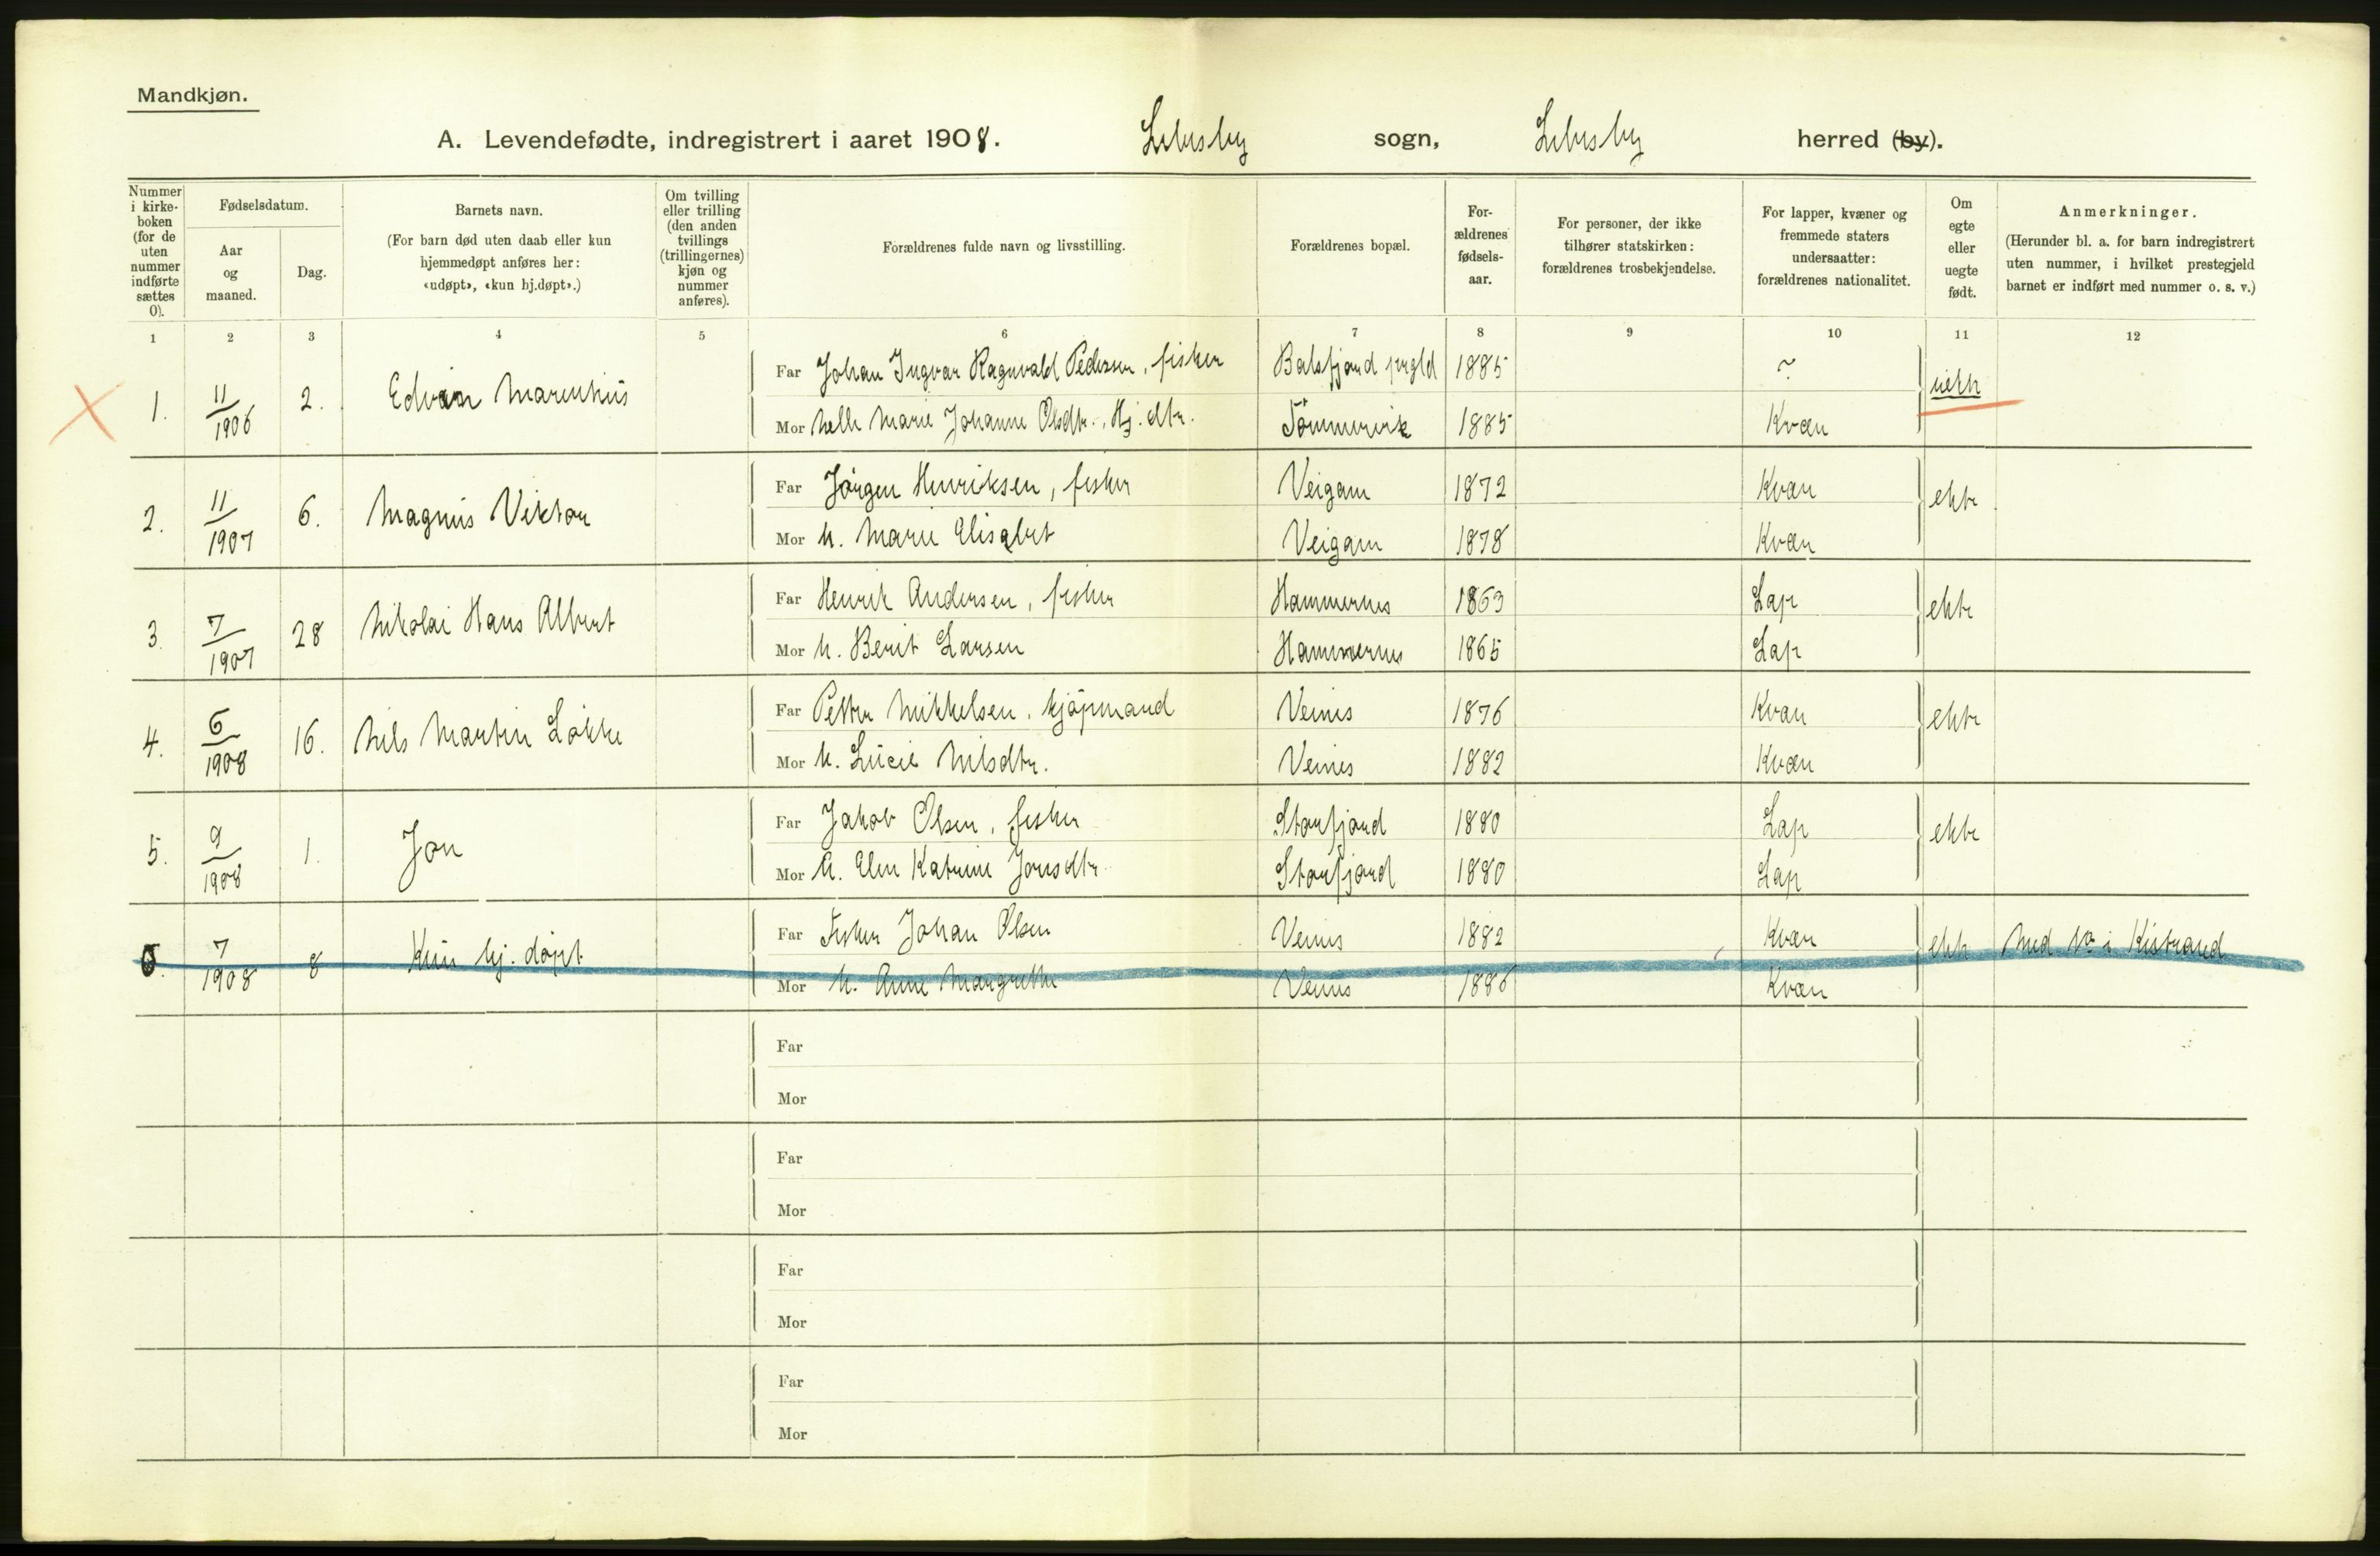 Mandkjøn.
A. Levendefødte, indregistrert i aaret 1908. Lebesby sogn, Lebesby herred (by).
Nummer i kirke-boken (for de uten nummer indførte sættes 0).
Fødselsdatum.
Aar og maaned.
Dag.
Barnets navn.
(For barn død uten daab eller kun hjemmedøpt anføres her: «udøpt», «kun hj.døpt».)
Om tvilling eller trilling (den anden tvillings (trillingernes) kjøn og nummer anføres).
Forældrenes fulde navn og livsstilling.
Forældrenes bopæl.
For-ældrenes fødsels-aar.
For personer, der ikke tilhører statskirken: forældrenes trosbekjendelse.
For lapper, kvæner og fremmede staters undersaatter: forældrenes nationalitet.
Om egte eller uegte født.
Anmerkninger.
(Herunder bl. a. for barn indregistrert uten nummer, i hvilket prestegjeld barnet er indført med nummer o. s. v.)
1 2 3 4 5 6 7 8 9 10 11 12
Far Johan Ingvar Ragnvald Pedersen, fisker Balsfjord prgld 1885 ?
1. 11/1906 2. Edvin Marenthius uekte
Mor Nelle Marie Johanne Olsdtr., Hj. dtr. Tömmervik 1885 Kvæn
Far Jörgen Henriksen, fisker Veigam 1872 Kvæn
2. 11/1907 6. Magnus Viktor ekte
Mor h. Marie Elisabet Veigam 1878 Kvæn
Far Henrik Andersen, fisker Hammernes 1863 Lap
3. 7/1907 28 Nikolai Hans Albert ekte
Mor h. Berit Larsen Hammernes 1865 Lap
Far Petter Mikkelsen, kjöpmand Veines 1876 Kvæn
4. 6/1908 16. Nils Martin Løkke ekte
Mor h. Lucie Nilsdtr. Veines 1882 Kvæn
Far Jakob Olsen, fisker Storfjord 1880 Lap
5. 9/1908 1. Jon ekte
Mor h. Elen Katrine Jonsdtr. Storfjord 1880 Lap
Far Fisker Johan Olsen Veines 1882 Kvæn
0. 7/1908 8 Kun hj. døpt ekte Med No i Kistrand
Mor h. Anne Margrethe Veines 1886 Kvæn
Far
Mor
Far
Mor
Far
Mor
Far
Mor